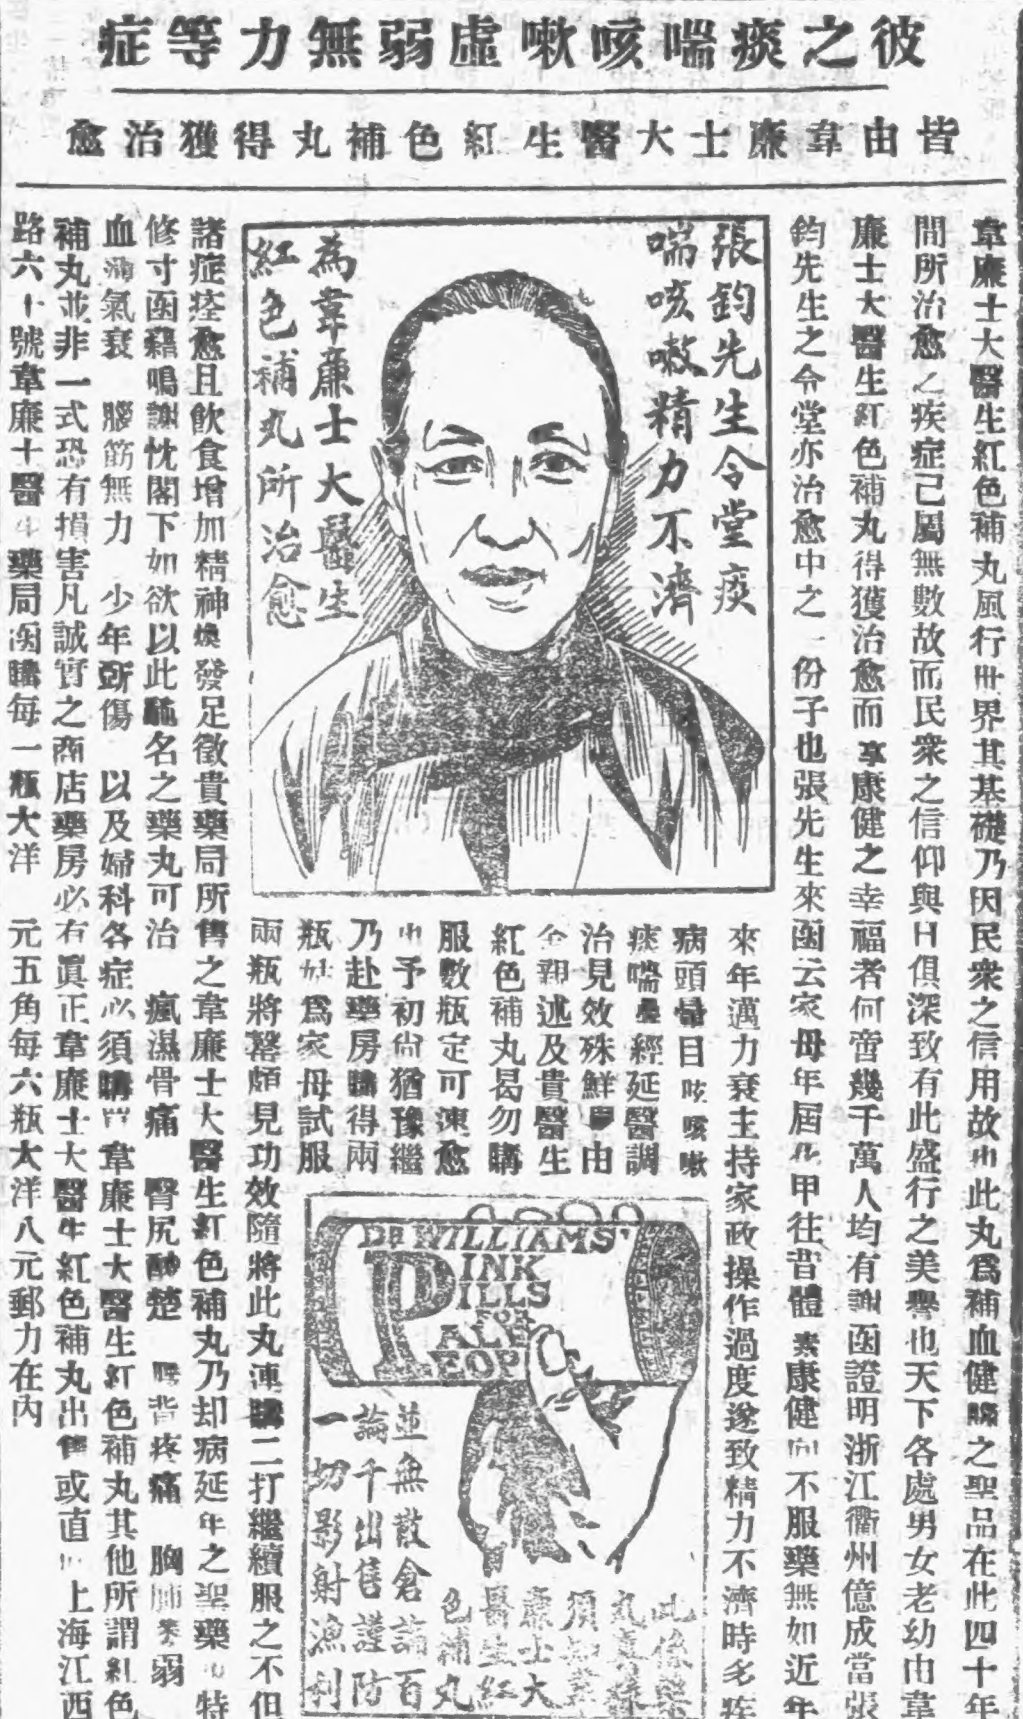 彼之痰喘咳嗽虛弱無力等症
皆由韋廉士大醫生紅色補丸得獲治愈
韋廉士大醫生紅色補丸風行世界其基礎乃因民衆之信用故也此丸爲補血健腦之聖品在此四十年
間所治愈之疾症已屬無數故而民衆之信仰與日俱深致有此盛行之美譽也天下各處男女老幼由韋
廉士大醫生紅色補丸得獲治愈而享康健之幸福者何啻幾千萬人均有謝函證明浙江衢州億成當張
鈞先生之令堂亦治愈中之一份子也張先生來函云家母年屆花甲往昔體素康健向不服藥無如近年
張鈞先生令堂痰
喘咳嗽精力不濟
為韋廉士大醫生
紅色補丸所治愈
來年邁力衰主持家政操作過度遂致精力不濟時多疾
病頭暈目眩咳嗽
痰喘屢經延醫調
治見效殊鮮 由
親述及貴醫生
紅色補丸曷勿購
服數瓶定可速愈
予初尙猶豫繼
乃赴藥房購得兩
瓶 爲家母試服
兩瓶將罄頗見功效隨將此丸連購二打繼續服之不但
諸症痊愈且飲食增加精神煥發足徵貴藥局所售之韋廉士大醫生紅色補丸乃却病延年之聖藥也特
修寸函藉鳴謝忱閣下如欲以此馳名之藥丸可治 瘋濕骨痛 臀尻酸楚 腰背疼痛 胸肺 弱
血 氣衰 腦筋無力 少年斲傷 以及婦科各症必須購 韋廉士大醫生紅色補丸其他所謂紅色
補丸並非一式恐有損害凡誠實之商店藥房必有眞正韋廉士大醫生紅色補丸出售或直 上海江西
路六十號韋廉士醫生藥局函購每一瓶大洋 元五角每六瓶大洋八元郵力在內
DR WILLIAMS'
PINK
PILLS
FOR
ALE
PEOPLE
此係
丸
須
廉士大
醫生紅
色補丸
並無散倉 百
論千出售謹防
一切影射漁利